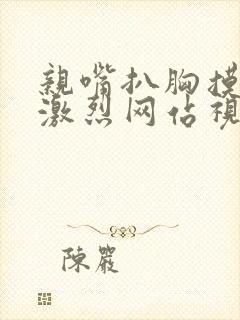 親嘴扒胸摸
激烈网佔視
陳嚴